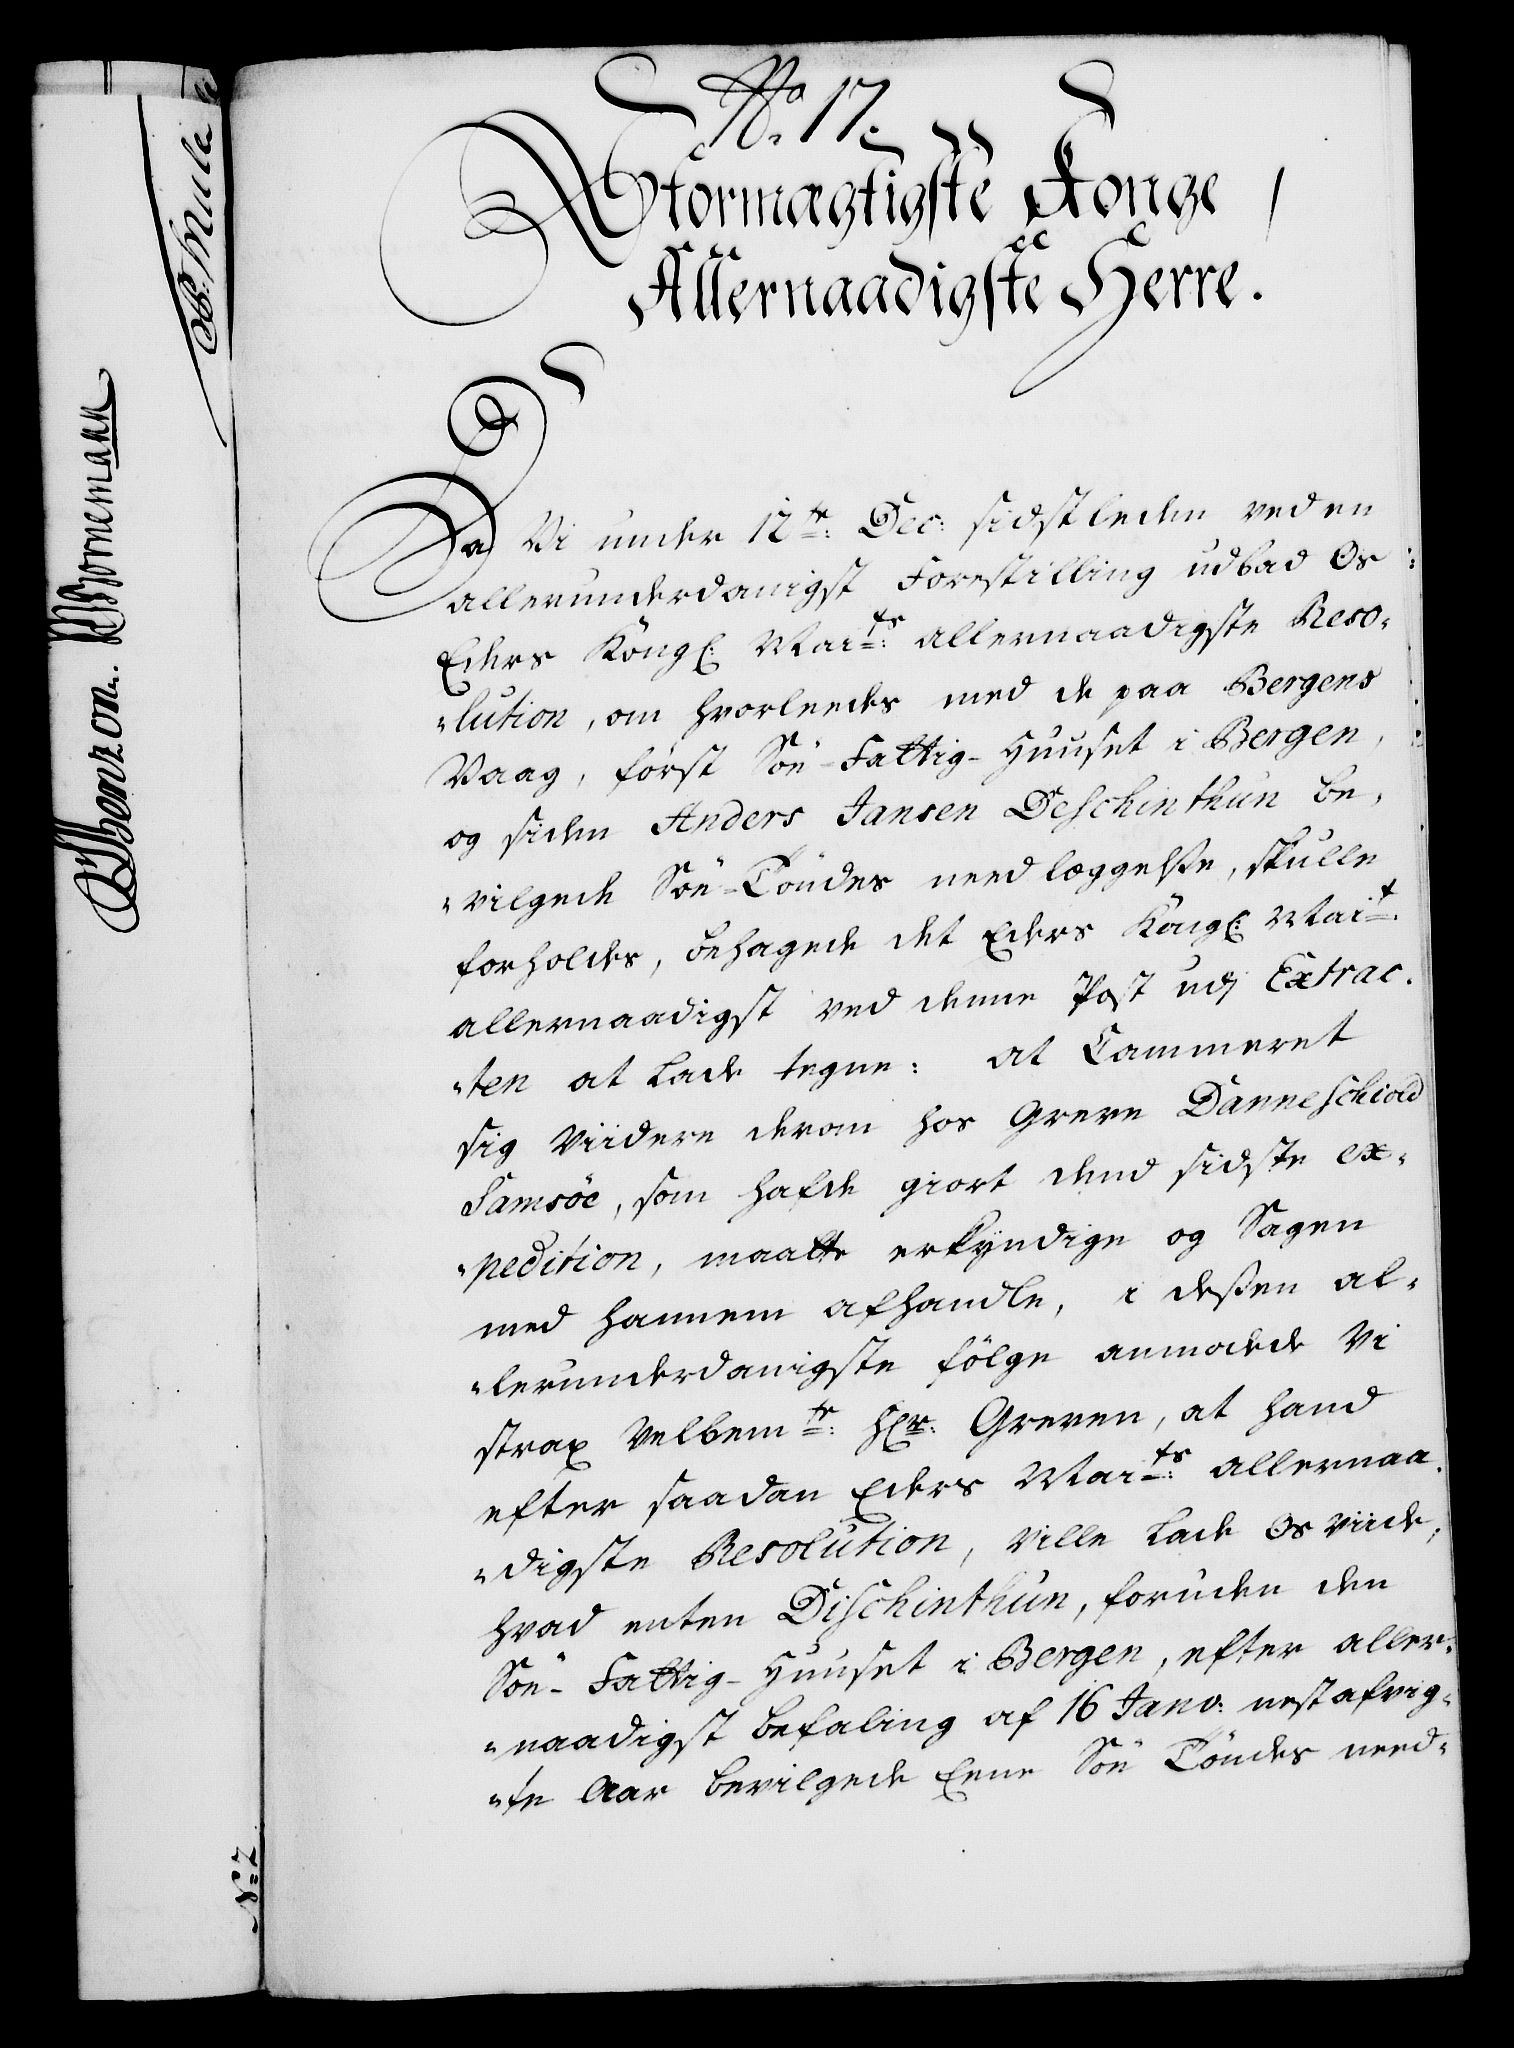 No. 17.
Stormægtigste Konge /
Allernaadigste Herre.
Da Vi under 12te: Dec: sidstleden ved en
allerunderdanigst Forestilling udbad Os
Eders Kongl: Mai:ts allernaadigste Reso-
-lution, om hvorleedes med de paa Bergens
Vaag, först Söe-Fattig-Huuset i Bergen,
og siden Anders Jansen Deschinthun be-
-vilgede Söe-Töndes needlæggelse, skulle
forholdes, behagede det Eders Kongl: Mai:t
allernaadigst ved denne Post udj Extrac-
-ten at lade tegne: at Cammeret
sig Viidere derom hos Greve Danneschiold
Samsöe, som hafde giort dend sidste ex-
-pedition, maatte erkyndige og Sagen
med hannem afhandle, i dessen al-
-lerunderdanigste fölge anmodede Vi
strax Velbemte: Hr: Greven, at hand
efter saadan Eders Mai:ts allernaa-
-digste Resolution, Ville lade Os Viide,
hvad enten Dischinthun, foruden den
Söe-Fattig-Huuset i Bergen, efter aller-
-naadigst befaling af 16 Janv: nestafvig-
-te Aar bevilgede Eene Söe Töndes need-
B: Mule
Bornemann
Benzon.
No: 2